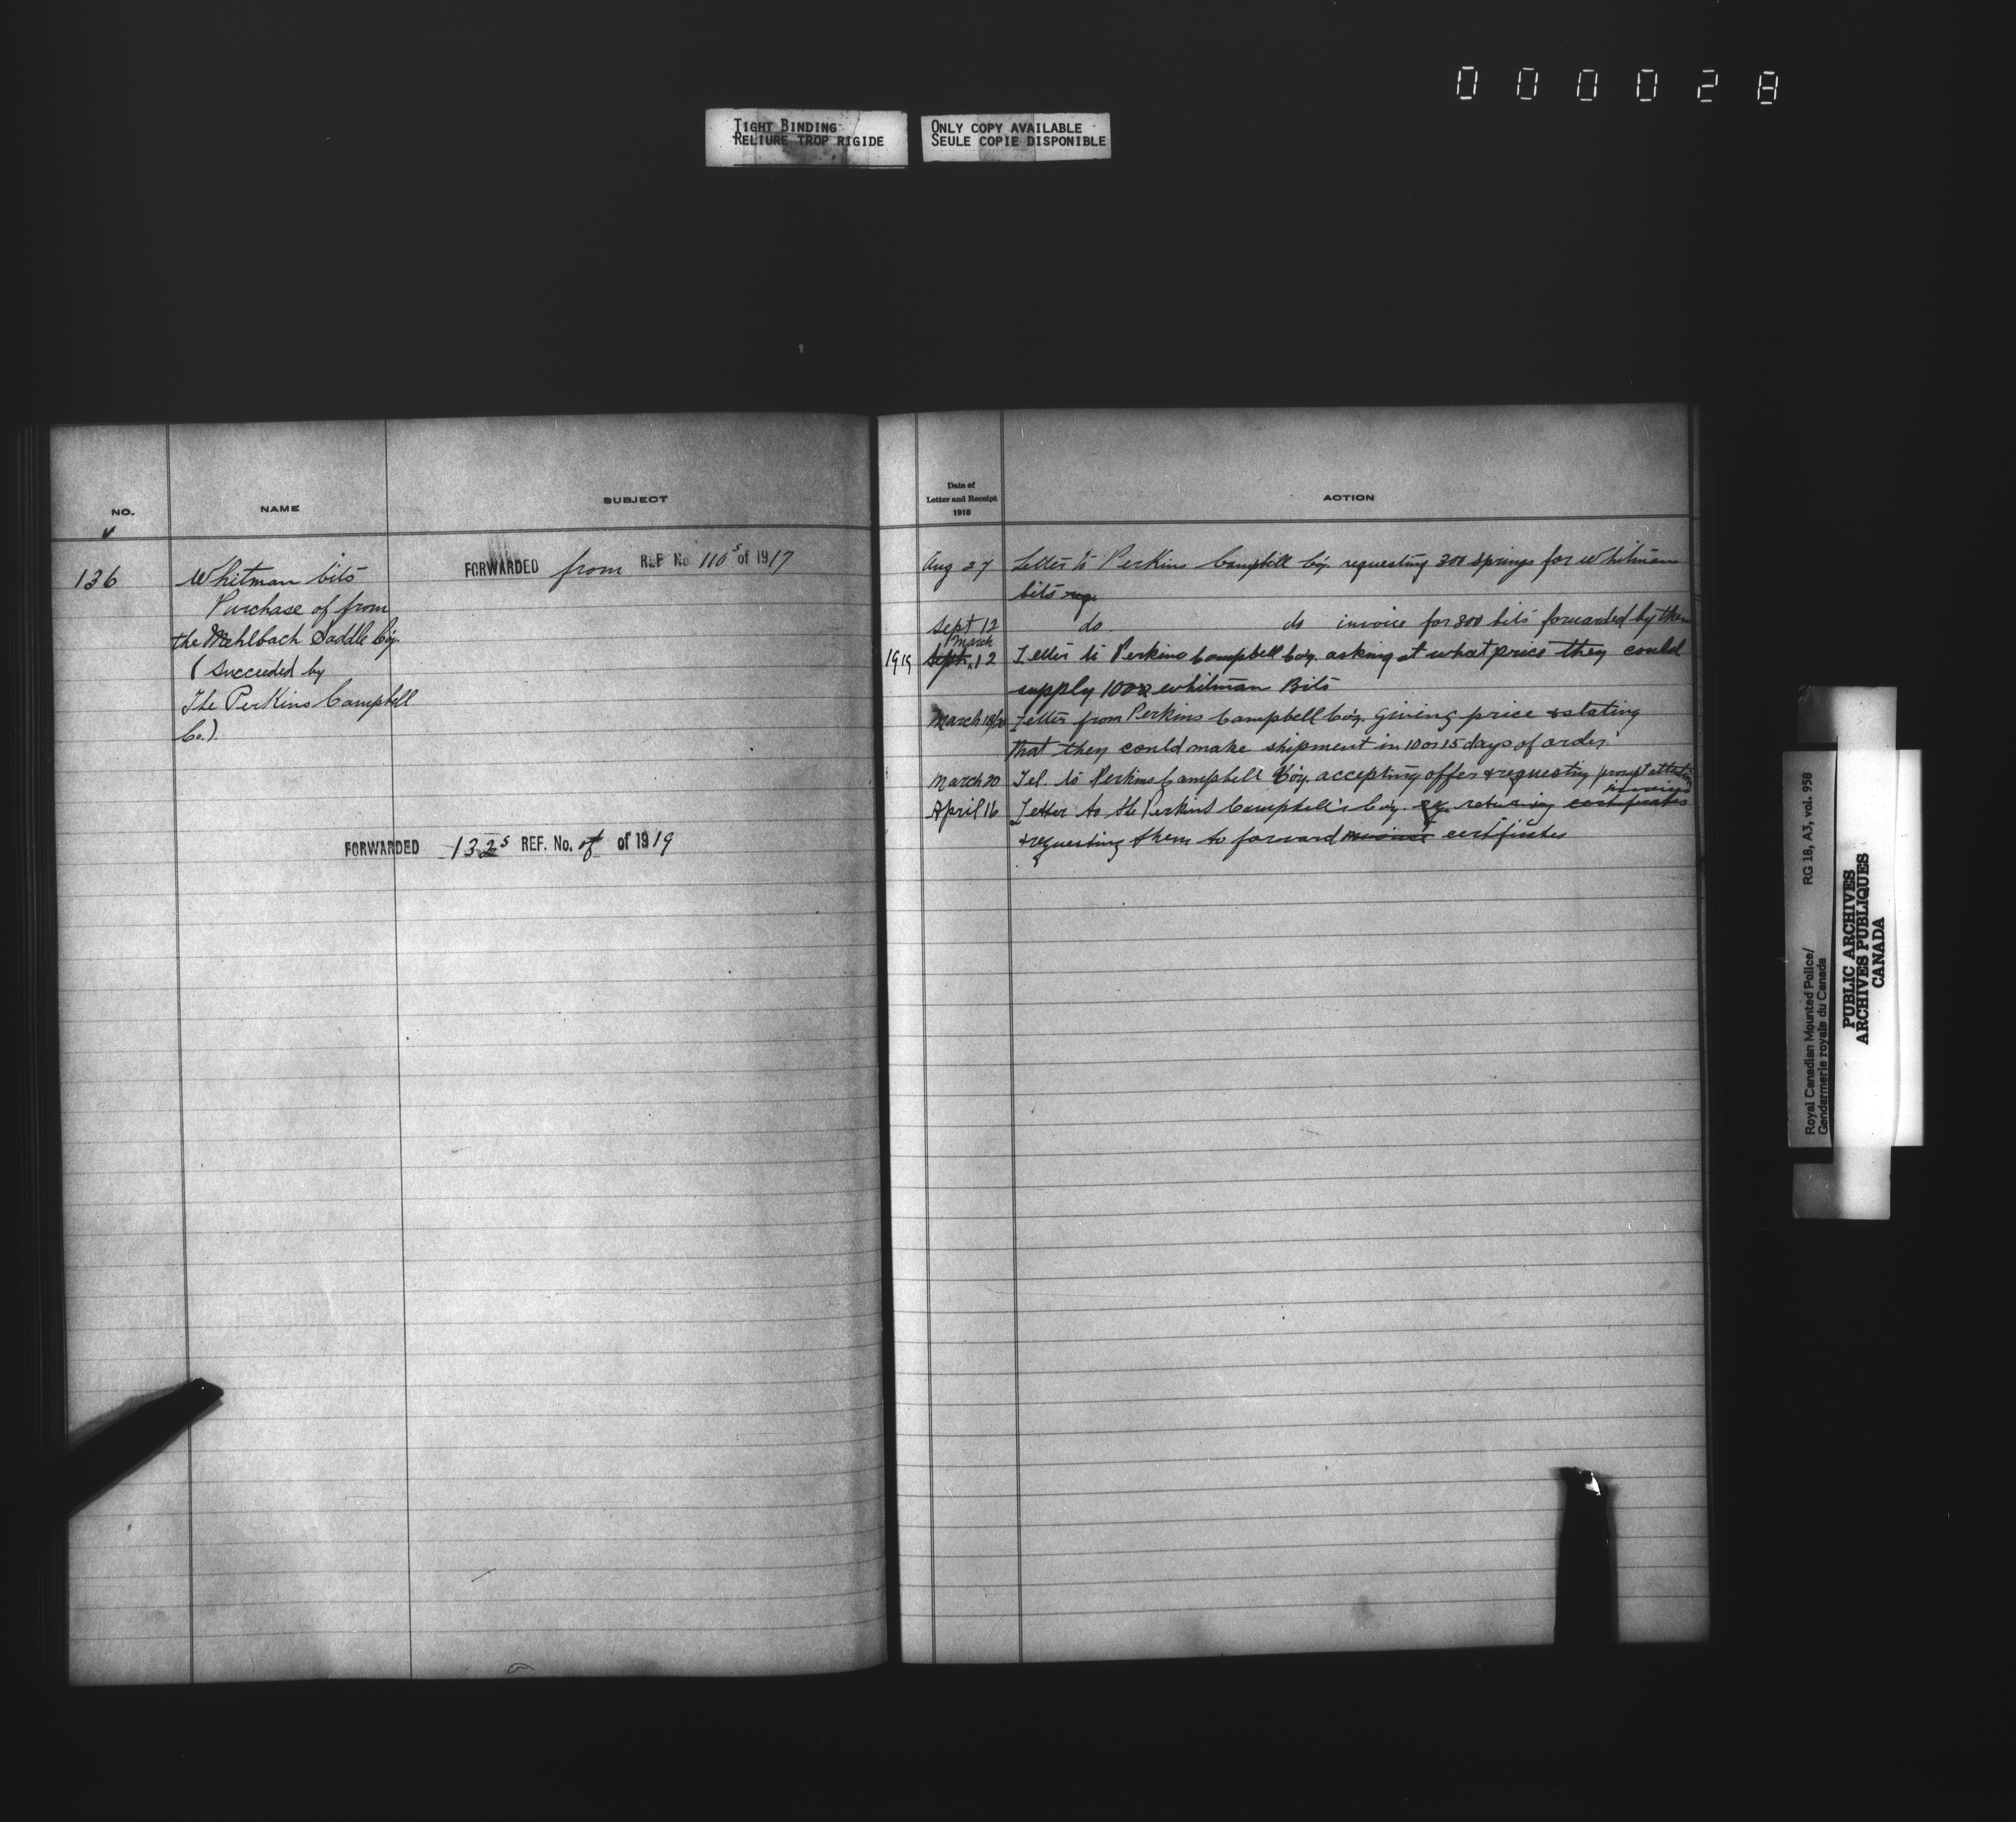 000028
TIGHT BINDING
RELIURE TROP RIGIDE
ONLY COPY AVAILABLE
SEULE COPIE DISPONIBLE
NO.
NAME
SUBJECT
136
Whitman bits
Purchase of from
the Mehlbach Saddle Coy.
(Succeeded by
The Perkins Campbell
Co.).
FORWARDED from REF No 110s of 1917
FORWARDED 132s REF. No. of of 1919
Date of
Letter and Receipt
1918
ACTION
Aug 27 Letter to Perkins Campbell Coy. requesting 300 springs for Whitman
bits
Sept 12 do do invoice for 300 bits forwarded by them
March
1919 Sept. 12 Letter to Perkins Campbell Coy. asking at what price they could
supply 100 whitman Bits
March 18/20 Letter from Perkins Campbell Coy. giving price & stating
that they could make shipment in 10 or 15 days of order.
March 20 Tel. to Perkins Campbell Coy. accepting offer & requesting prompt attention
invoices
April 16 Letter to the Perkins Campbell's Coy. returning certificates
& requesting them to forward invoice certificates
Royal Canadian Mounted Police/
Gendarmerie royale du Canada
RG 18, A3, vol. 958
PUBLIC ARCHIVES
ARCHIVES PUBLIQUES
CANADA